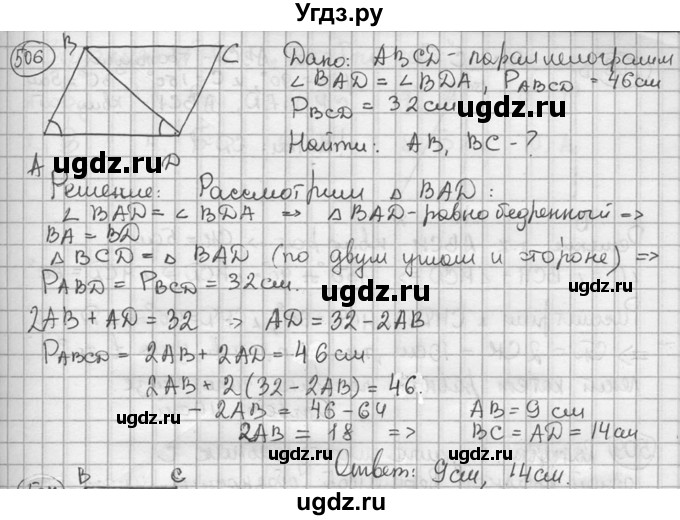 Угдз.ру
506
B
C
A
D
Дано: ABCD - параллелограмм
∠BAD = ∠BDA, P_ABCD = 46 см
P_BCD = 32 см
Найти: AB, BC - ?
Решение: Рассмотрим △ BAD:
∠BAD = ∠BDA => △BAD - равнобедренный =>
BA = BD
△BCD = △ BAD (по двум углам и стороне) =>
P_ABD = P_BCD = 32 см.
2AB + AD = 32 => AD = 32 - 2AB
P_ABCD = 2AB + 2AD = 46 см
2AB + 2(32 - 2AB) = 46
- 2AB = 46 - 64
AB = 9 см
2AB = 18 =>
BC = AD = 14 см
Ответ: 9 см, 14 см.
B
C
ugdz.ru
ugdz.ru
ugdz.ru
ugdz.ru
ugdz.ru
ugdz.ru
ugdz.ru
ugdz.ru
ugdz.ru
ugdz.ru
ugdz.ru
ugdz.ru